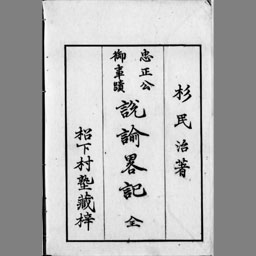 杉民治著
忠正公
御事蹟
説諭畧記 全
松下村塾藏梓